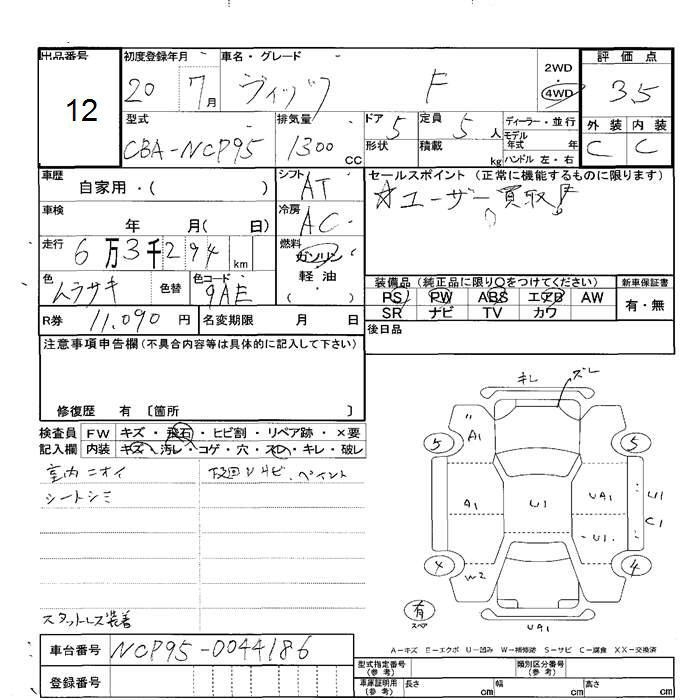 出品番号
12
初度登録年月
20 7月
車名・グレード
ヴィッツ F
2WD
4WD
評価点
3.5
型式
CBA-NCP95
排気量
1300 CC
ドア 5
形状
定員 5 人
積載 kg
ディーラー・並行
モデル年式 年
ハンドル 左・右
外装 内装
C C
車歴
自家用・( )
シフト
AT
セールスポイント (正常に機能するものに限ります)
☆ユーザー買取!
車検
年 月( 日)
冷房
AC
走行
6万3千294km
燃料
ガソリン
軽油
( )
色
ムラサキ
色替
色コード
9AE
装備品(純正品に限り〇をつけてください)
PS PW ABS エアB AW
SR ナビ TV カワ
新車保証書
有・無
R券 11,090 円
名変期限 月 日
後日品
注意事項申告欄(不具合内容等は具体的に記入して下さい)
修復歴 有〔箇所 〕
検査員記入欄
FW キズ・飛石・ヒビ割・リペア跡・×要
内装 キズ・汚レ・コゲ・穴・スレ・キレ・破レ
室内ニオイ
シートシミ
下回りサビ、ペイント
スタットレス装着
キレ
ズレ
A1
5 5
A1 U1 UA1 U1
C1
U1
4 4
W2
有
スペア
UA1
A-キズ E-エクボ U-凹み W-補修跡 S-サビ C-腐食 XX-交換済
車台番号 NCP95-0044186
登録番号
型式指定番号(参考)
類別区分番号(参考)
車庫証明用(参考) 長さ cm 幅 cm 高さ cm